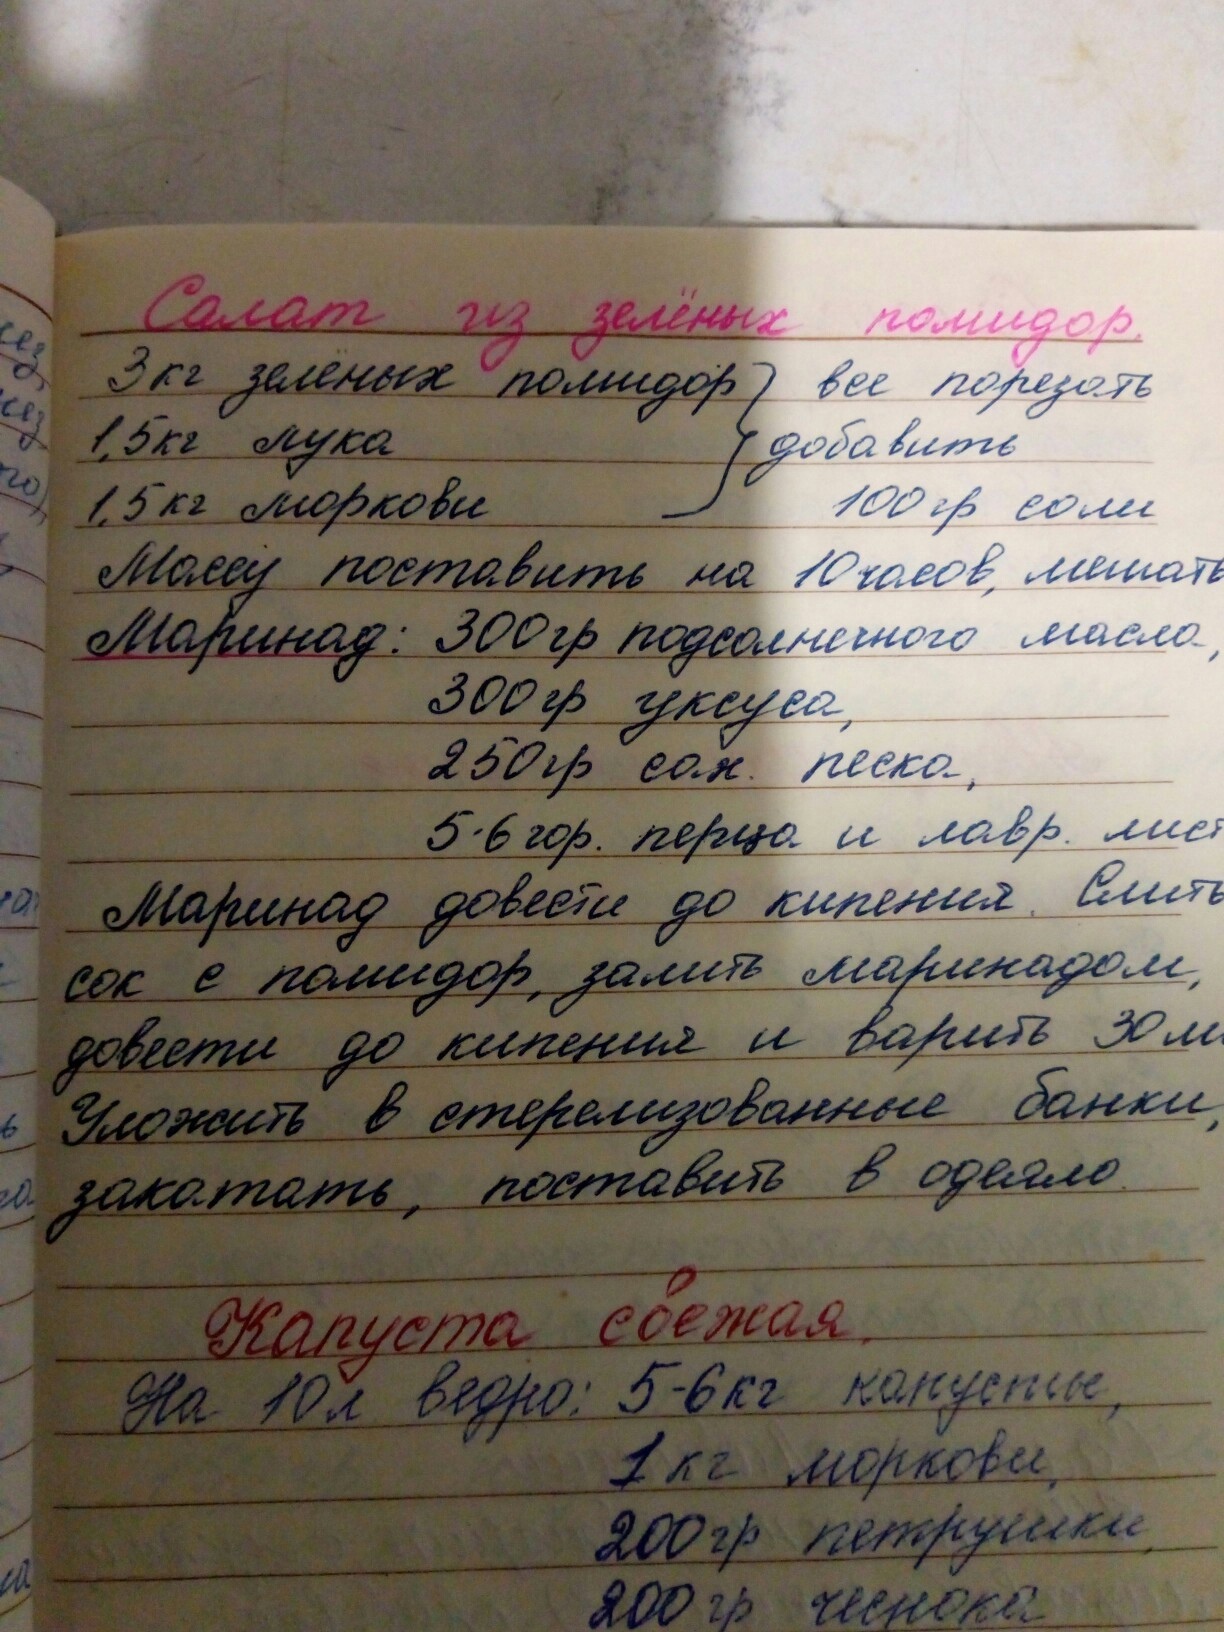 Салат из зелёных помидор.
3кг зелёных помидор } все порезать
1,5кг лука добавить
1,5кг моркови 100гр соли
Массу поставить на 10 часов, мешать
Маринад: 300гр подсолнечного масла,
300гр уксуса,
250гр сах. песка,
5-6 гор. перца и лавр. лист
Маринад довести до кипения. Слить
сок с помидор, залить маринадом,
довести до кипения и варить 30 ми
Уложить в стерелизованные банки,
закатать, поставить в одеяло.
Капуста свежая.
На 10л ведро: 5-6кг капусты,
1кг моркови,
200гр петрушки,
200гр чеснока